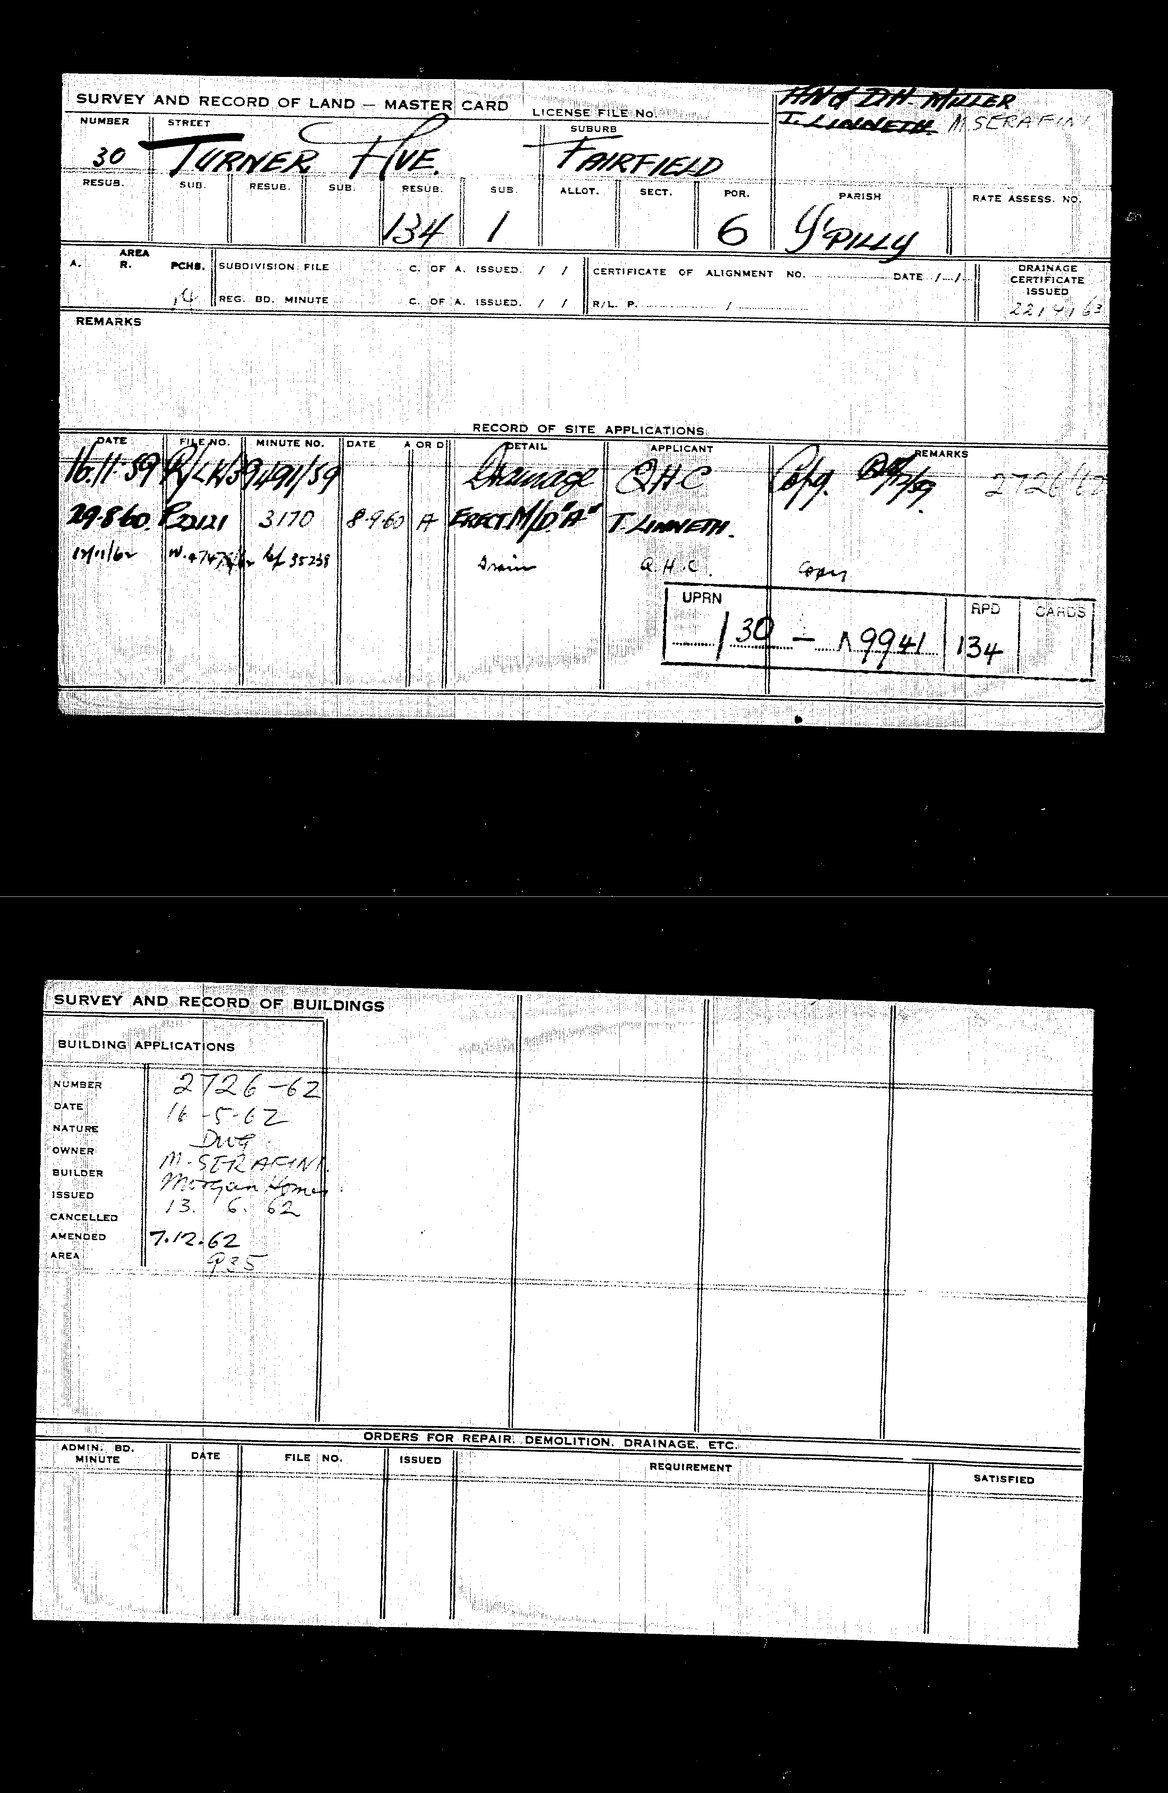 SURVEY AND RECORD OF LAND — MASTER CARD LICENSE FILE No.
H.N & D.H. MILLER
T. LINNETH. M SERAFINI
NUMBER STREET SUBURB
30 TURNER AVE. FAIRFIELD
RESUB. SUB. RESUB. SUB. RESUB. SUB. ALLOT. SECT. POR. PARISH RATE ASSESS. NO.
134 1 6 Y'PILLY
AREA
A. R. PCHS. SUBDIVISION FILE C. OF A. ISSUED. / / CERTIFICATE OF ALIGNMENT NO. DATE / / DRAINAGE CERTIFICATE ISSUED
REG. BD. MINUTE C. OF A. ISSUED. / / R/L. P. / 22/4/63
REMARKS
RECORD OF SITE APPLICATIONS
DATE FILE NO. MINUTE NO. DATE A OR D DETAIL APPLICANT REMARKS
16.11.59 Drainage Q.H.C 2726/62
29.8.60. P22121 3170 8.9.60 A ERECT M/D "A" T. LINNETH.
12/11/62 35238 Drain Q.H.C. Copy
UPRN RPD CARDS
/ 30 — 9941 134
SURVEY AND RECORD OF BUILDINGS
BUILDING APPLICATIONS
NUMBER 2726-62
DATE 16-5-62
NATURE Dwg.
OWNER M. SERAFINI.
BUILDER Morgan Homes.
ISSUED 13. 6. 62
CANCELLED
AMENDED 7.12.62
AREA 935
ORDERS FOR REPAIR, DEMOLITION, DRAINAGE, ETC.
ADMIN. BD. MINUTE DATE FILE NO. ISSUED REQUIREMENT SATISFIED